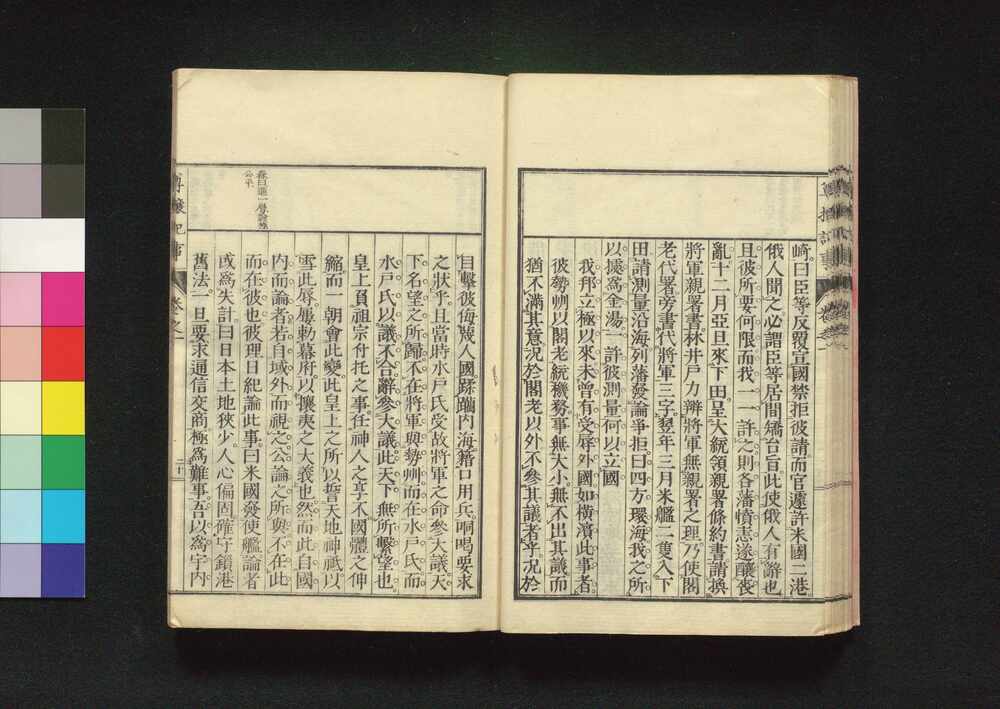 崎。曰臣等反覆宣國禁拒彼請而官遽許米國二港
俄人聞之必謂臣等居間矯台旨此使俄人有辭也
且彼所要何限而我一一許之則各藩憤恚遂釀喪
亂十二月亞旦來下田呈大統領親署條約書請換
將軍親署書林井戶力辯將軍無親署之理乃使閣
老代署旁書代將軍三字翌年三月米艦二隻入下
田請測量沿海列藩發論爭拒曰四方環海我之所
以據為金湯一許彼測量何以立國
我邦立極以來未曾有受辱外國如橫濱此事者
彼勢州以閣老統機務事無大小無不出其議而
猶不滿其意況於閣老以外不參其議者乎況於
目擊彼侮蔑人國蹂躪內海藉口用兵恫喝要求
之狀乎且當時水戶氏受故將軍之命參大議天
下名望之所歸不在將軍與勢州而在水戶氏而
水戶氏以議不合辭參大議此天下無所繫望也
皇上負祖宗付托之事任神人之享不國體之伸
縮而一朝會此變此皇上之所以誓天地神祇以
雪此辱屢勅幕府以攘夷之大義也然而此自國
內而論者若自域外而視之公論之所與不在此
而在彼也彼理日紀論此事曰米國發使艦論者
或為失計曰日本土地狹少人心偏固確守鎖港
舊法一旦要求通信交商極為難事吾以為宇內
森曰
公平
尊攘紀事
卷之一
二十